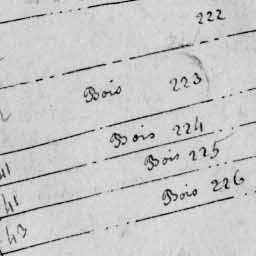 222
Bois 223
Bois 224
41 Bois 225
41 Bois 226
43